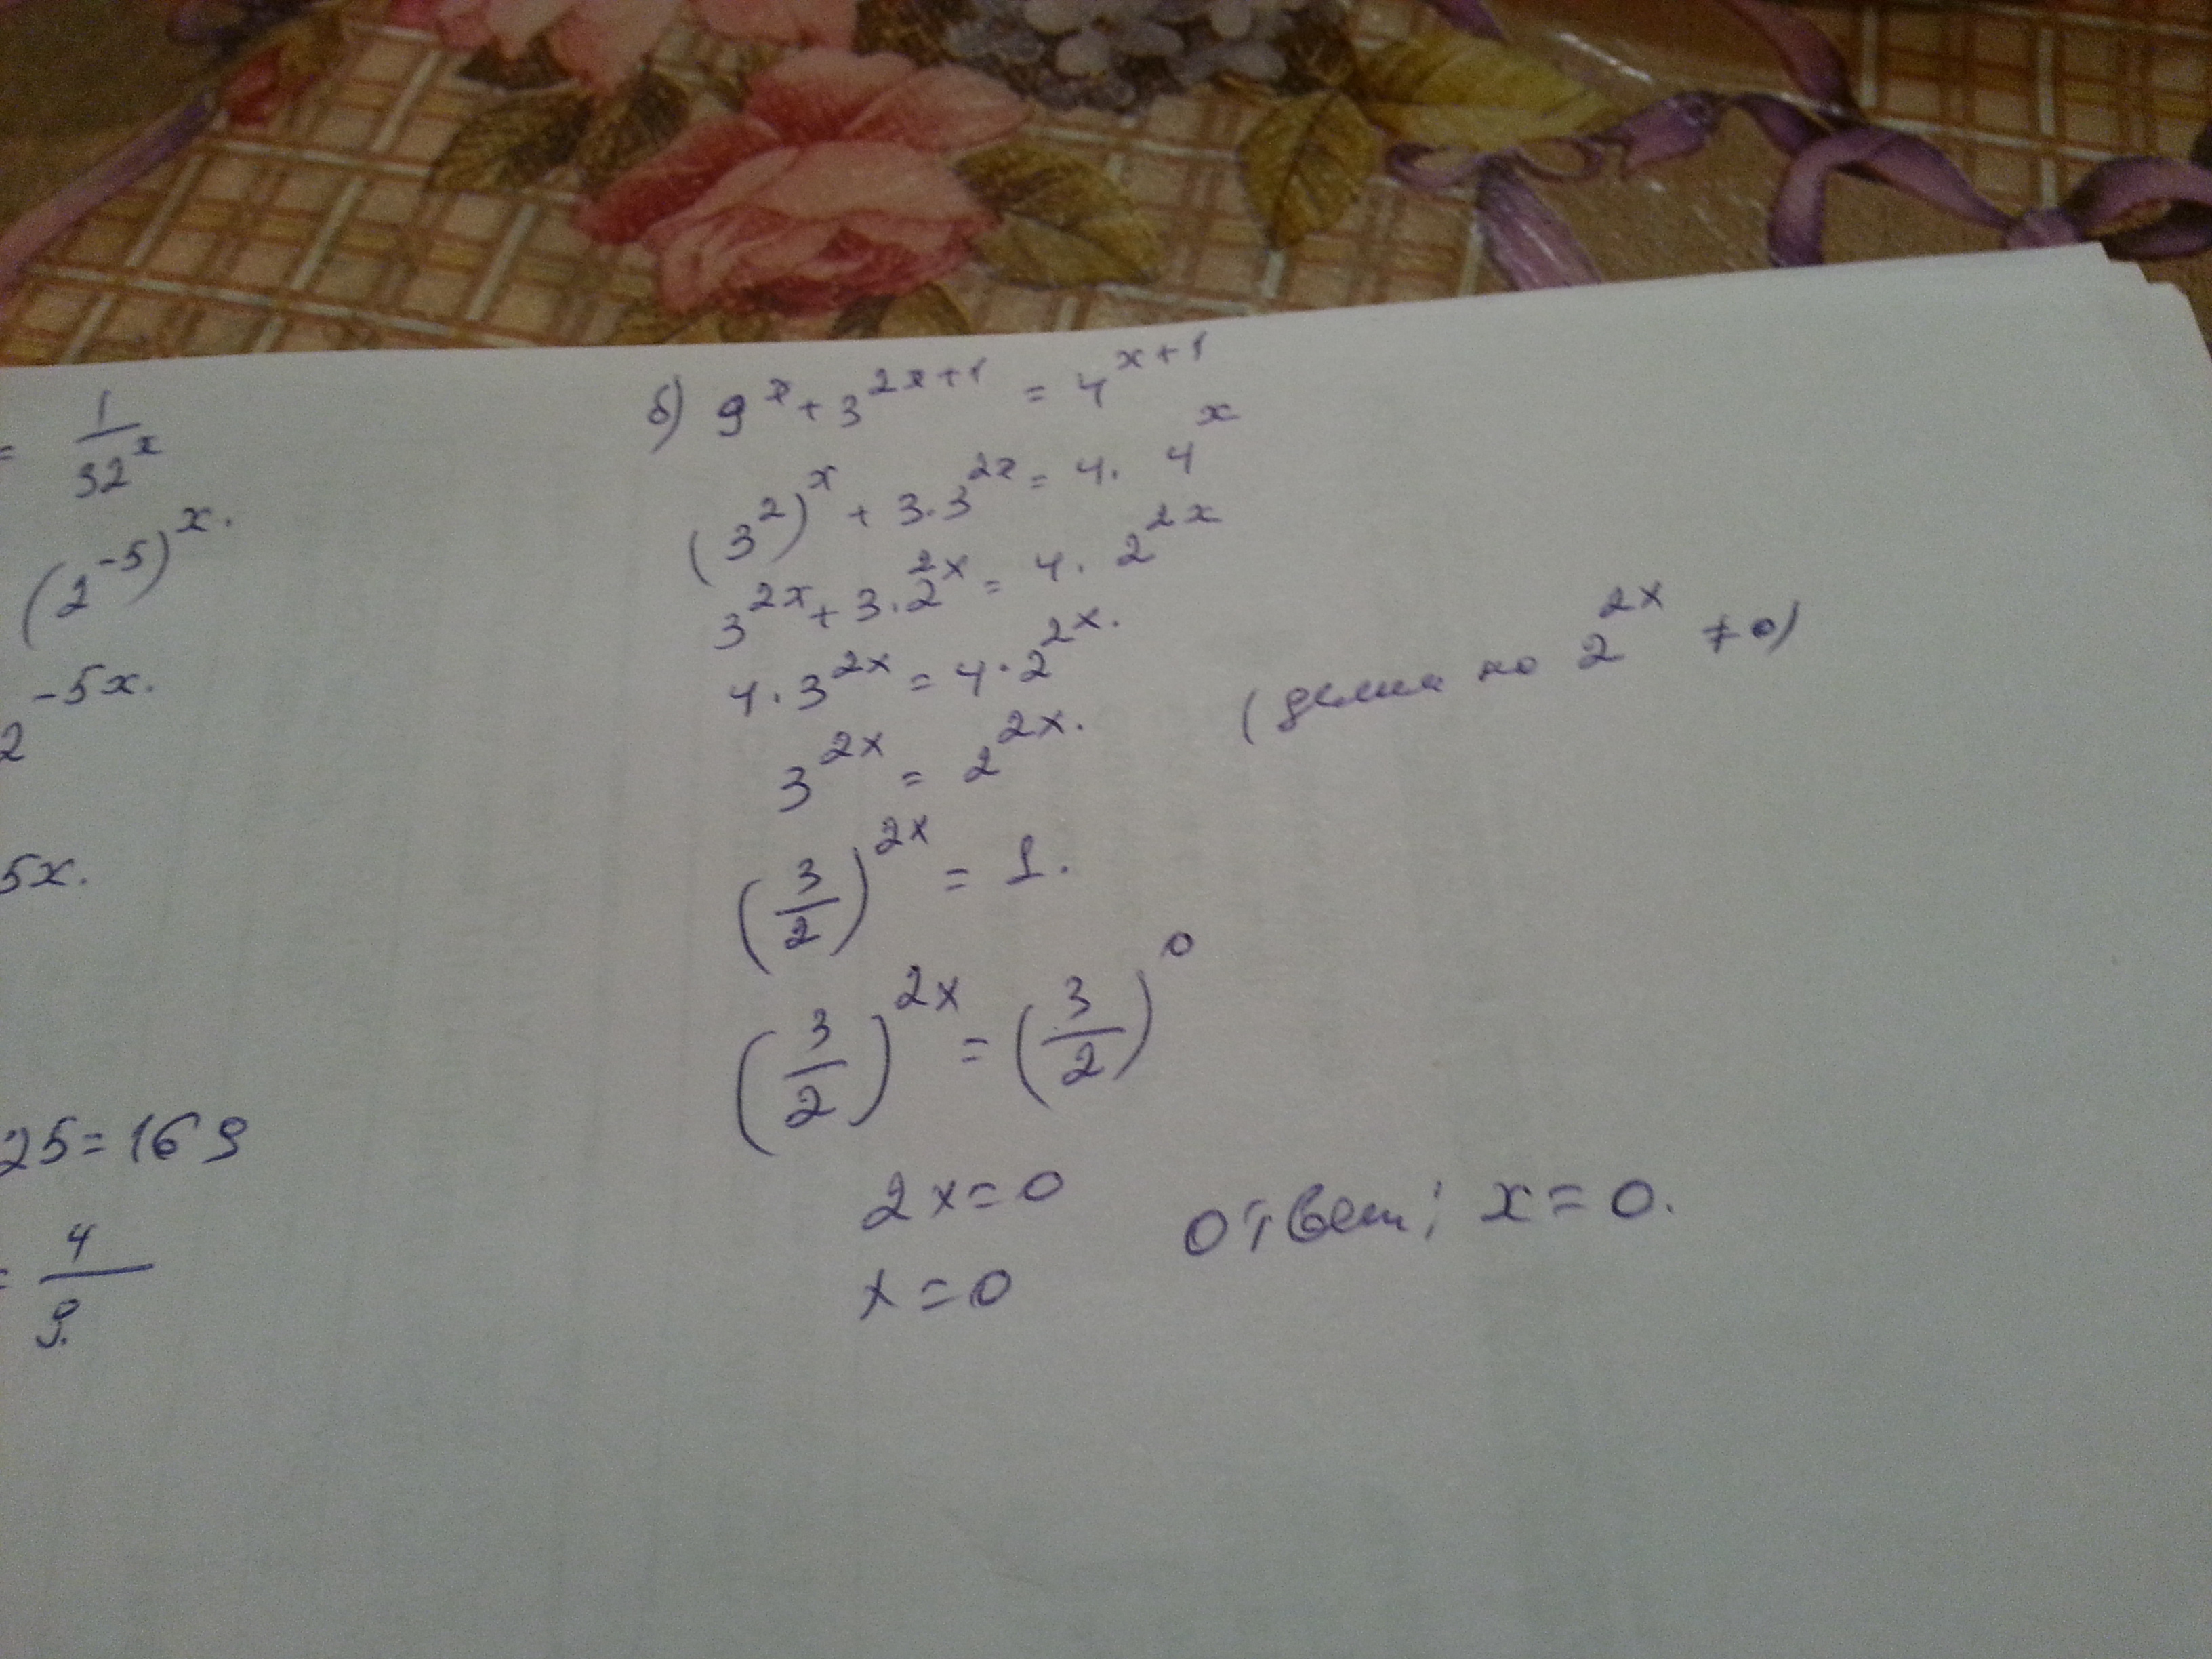 = 1/32^x
(2^-5)^x.
2^-5x.
5x.
25=169
= 4/9.
б) 9^x + 3^2x+1 = 4^x+1
(3^2)^x + 3·3^2x = 4· 4^x
3^2x + 3·2^2x = 4· 2^2x
4·3^2x = 4·2^2x.
3^2x = 2^2x. (делим на 2^2x ≠0)
(3/2)^2x = 1.
(3/2)^2x = (3/2)^0
2x=0
x=0
Ответ: x=0.